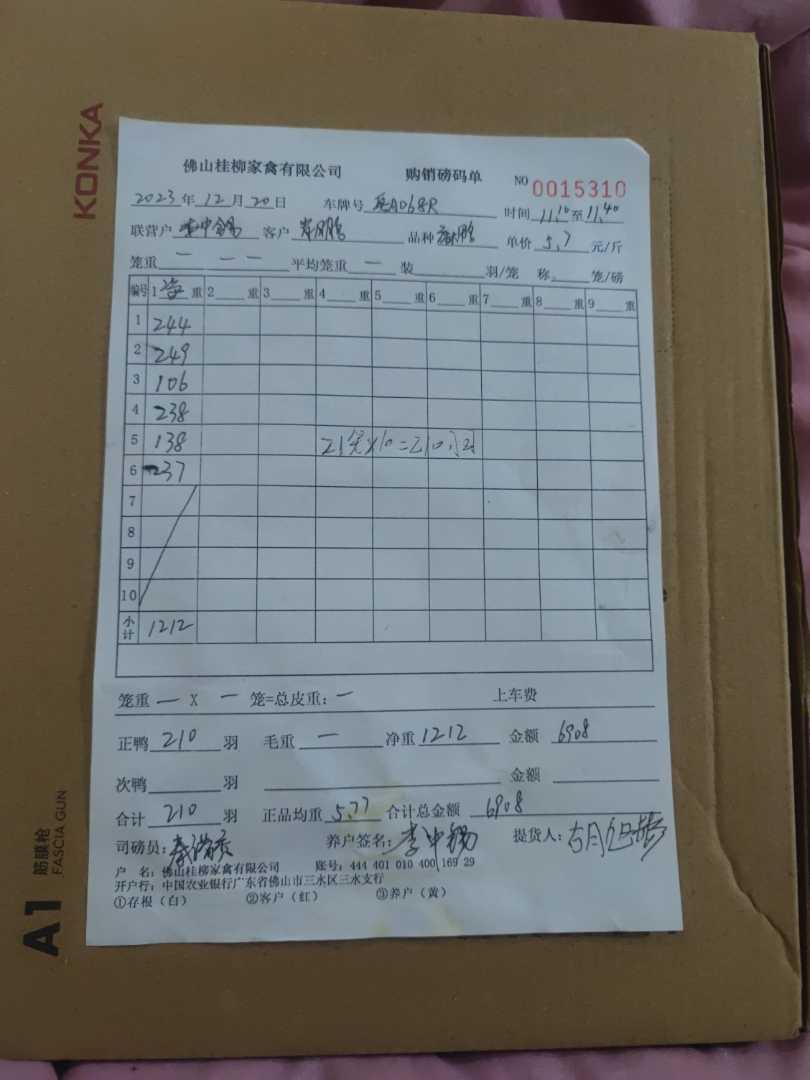 KONKA
佛山桂柳家禽有限公司 购销磅码单 NO 0015310
2023年12月20日 车牌号 A068R 时间 11.10至11.40
联营户 李中锡 客户 品种 单价 5.7 元/斤
笼重 — — — 平均笼重 — 装 羽/笼 称 笼/磅
编号 1 净重 2 重 3 重 4 重 5 重 6 重 7 重 8 重 9 重
1 244
2 249
3 106
4 238
5 138 21笼×10=210羽
6 237
7
8
9
10
小计 1212
笼重 — X — 笼=总皮重: — 上车费
正鸭 210 羽 毛重 — 净重 1212 金额 6908
次鸭 羽 金额
合计 210 羽 正品均重 5.77 合计总金额 6908
司磅员: 养户签名: 李中锡 提货人:
户 名: 佛山桂柳家禽有限公司 账号: 444 401 010 400 169 29
开户行: 中国农业银行广东省佛山市三水区三水支行
①存根(白) ②客户(红) ③养户(黄)
A1 筋膜枪
FASCIA GUN